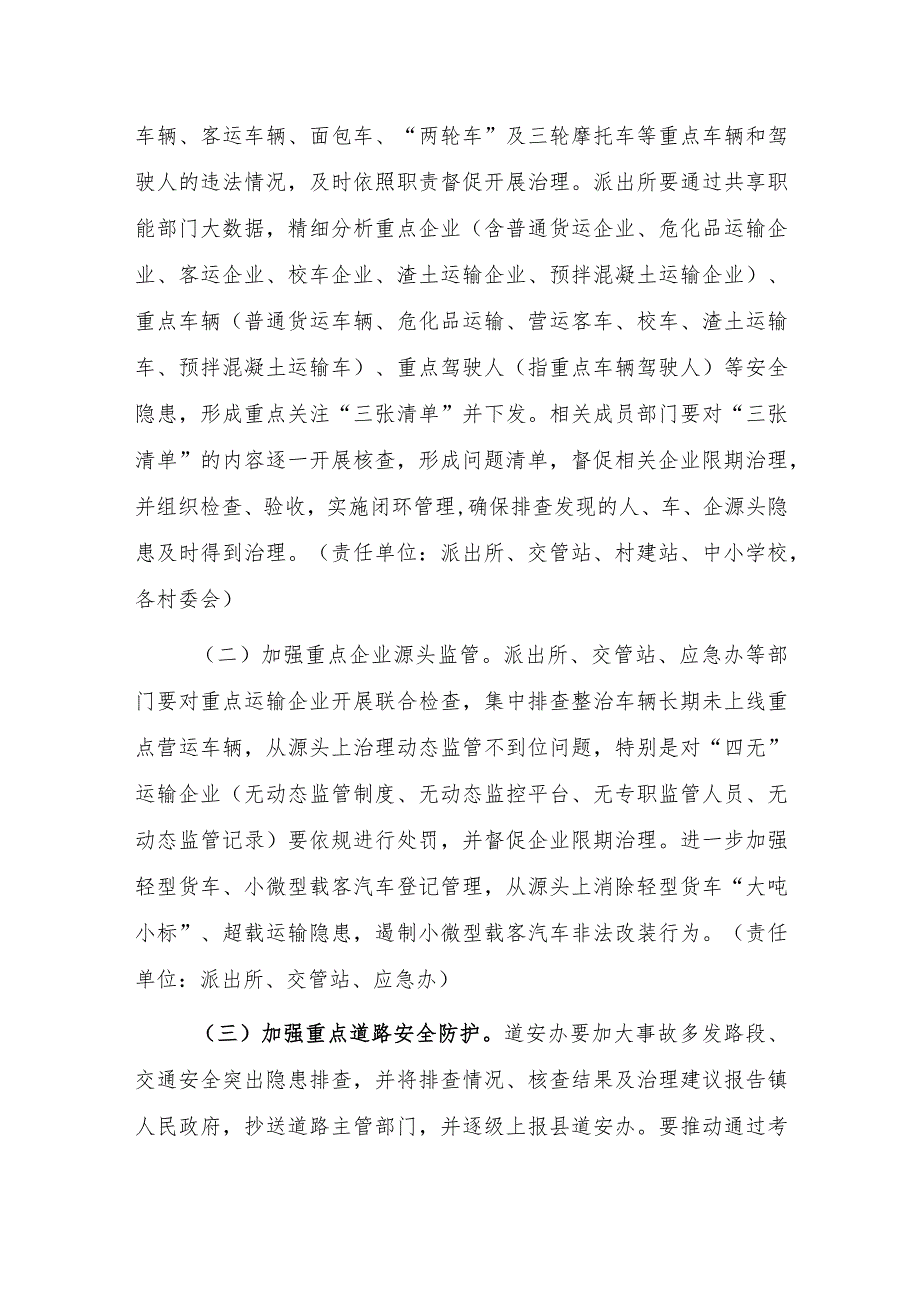 车辆、客运车辆、面包车、“两轮车”及三轮摩托车等重点车辆和驾
驶人的违法情况，及时依照职责督促开展治理。派出所要通过共享职
能部门大数据，精细分析重点企业（含普通货运企业、危化品运输企
业、客运企业、校车企业、渣土运输企业、预拌混凝土运输企业）、
重点车辆（普通货运车辆、危化品运输、营运客车、校车、渣土运输
车、预拌混凝土运输车）、重点驾驶人（指重点车辆驾驶人）等安全
隐患，形成重点关注“三张清单”并下发。相关成员部门要对“三张
清单”的内容逐一开展核查，形成问题清单，督促相关企业限期治理，
并组织检查、验收，实施闭环管理,确保排查发现的人、车、企源头隐
患及时得到治理。（责任单位：派出所、交管站、村建站、中小学校，
各村委会）
（二）加强重点企业源头监管。派出所、交管站、应急办等部
门要对重点运输企业开展联合检查，集中排查整治车辆长期未上线重
点营运车辆，从源头上治理动态监管不到位问题，特别是对“四无”
运输企业（无动态监管制度、无动态监控平台、无专职监管人员、无
动态监管记录）要依规进行处罚，并督促企业限期治理。进一步加强
轻型货车、小微型载客汽车登记管理，从源头上消除轻型货车“大吨
小标”、超载运输隐患，遏制小微型载客汽车非法改装行为。（责任
单位：派出所、交管站、应急办）
（三）加强重点道路安全防护。道安办要加大事故多发路段、
交通安全突出隐患排查，并将排查情况、核查结果及治理建议报告镇
人民政府，抄送道路主管部门，并逐级上报县道安办。要推动通过考